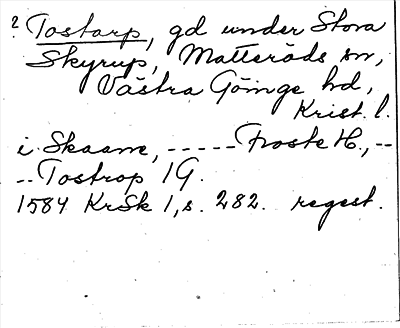 ? Tostarp, gd under Stora
Skyrup, Matteröds sn,
Västra Göinge hd,
Krist. l.
i Skaane, ----- Froste H., --
-- Tostrop 1 G.
1584 KrSk 1, s. 282. regest.